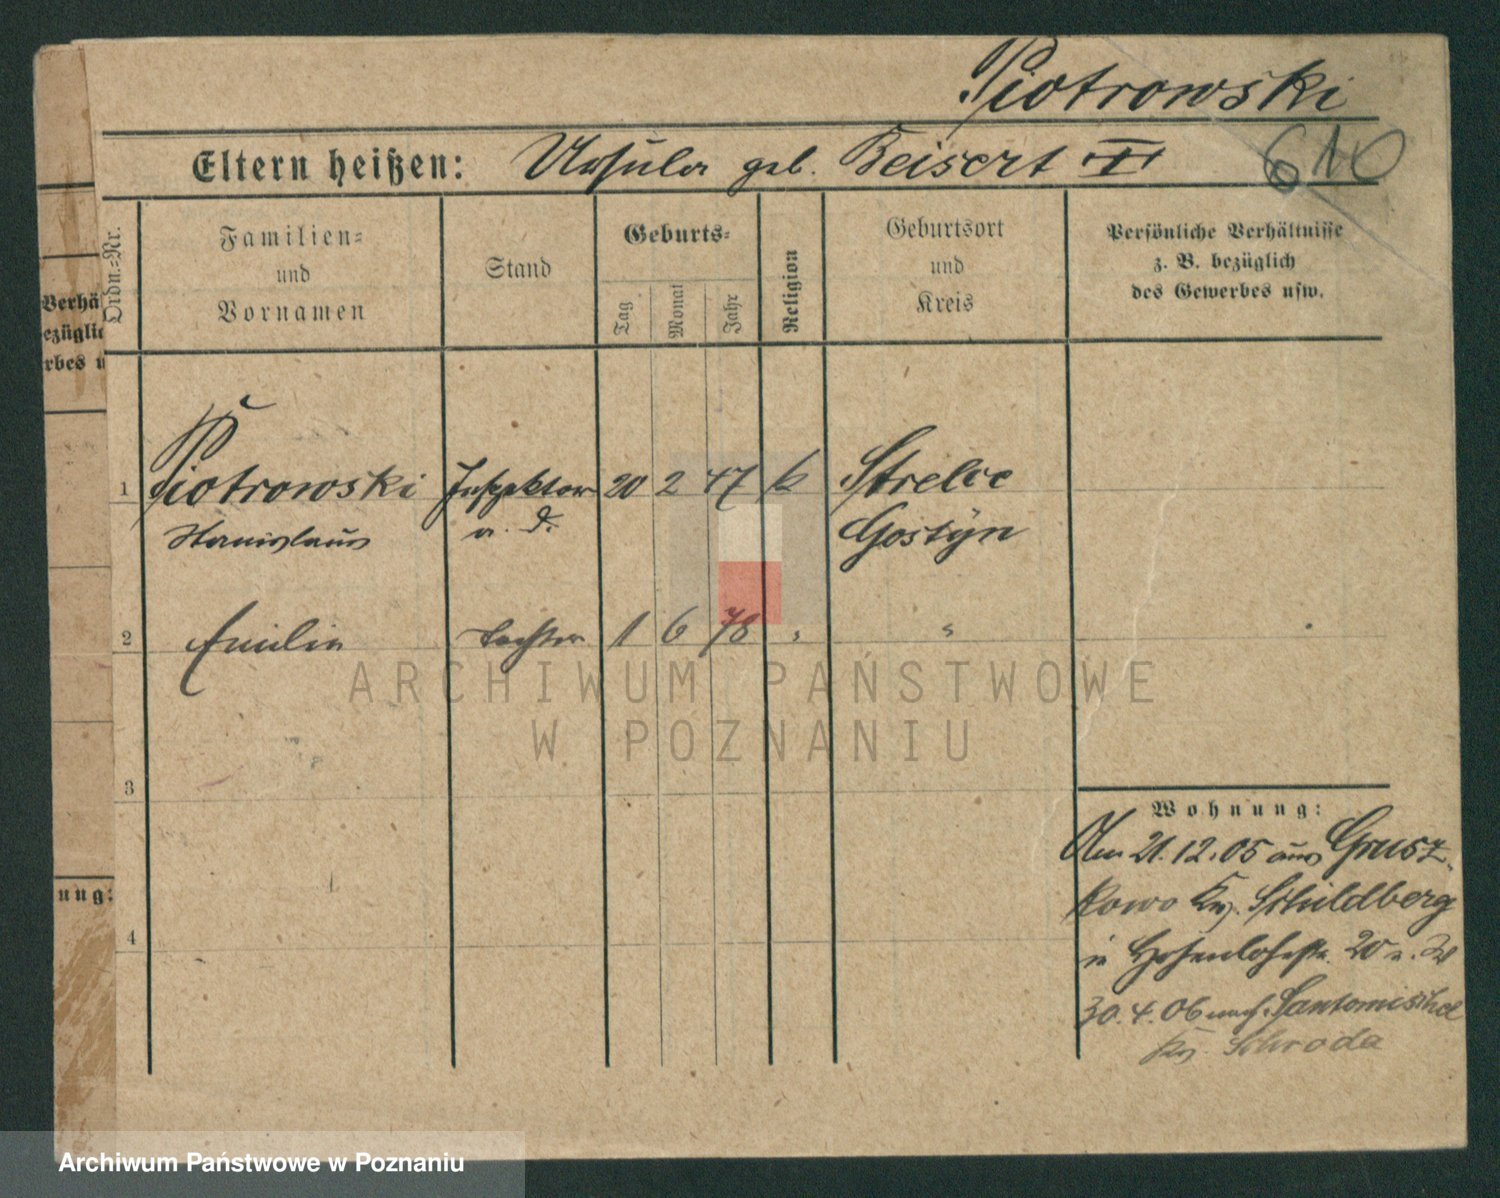 Piotrowski
Eltern heißen: Ursula geb. Beisert
610
Ordn.-Nr.
Familien-
und
Vornamen
Stand
Geburts-
Tag
Monat
Jahr
Religion
Geburtsort
und
Kreis
Persönliche Verhältnisse
z. B. bezüglich
des Gewerbes usw.
Verhä
ezüglic
rbes u
1 Piotrowski Inspektor 20 2 47 k Strelce
Stanislaus a. D. Gostyn
2 Emilie Tochter 1 6 78 " "
3
4
Wohnung:
Am 21.12.05 aus Grusz-
kowo Krs. Schildberg
in Hohenlohestr. 20
30.4.06 nach Santomischel
Krs. Schroda
nung:
ARCHIWUM PAŃSTWOWE
W POZNANIU
Archiwum Państwowe w Poznaniu